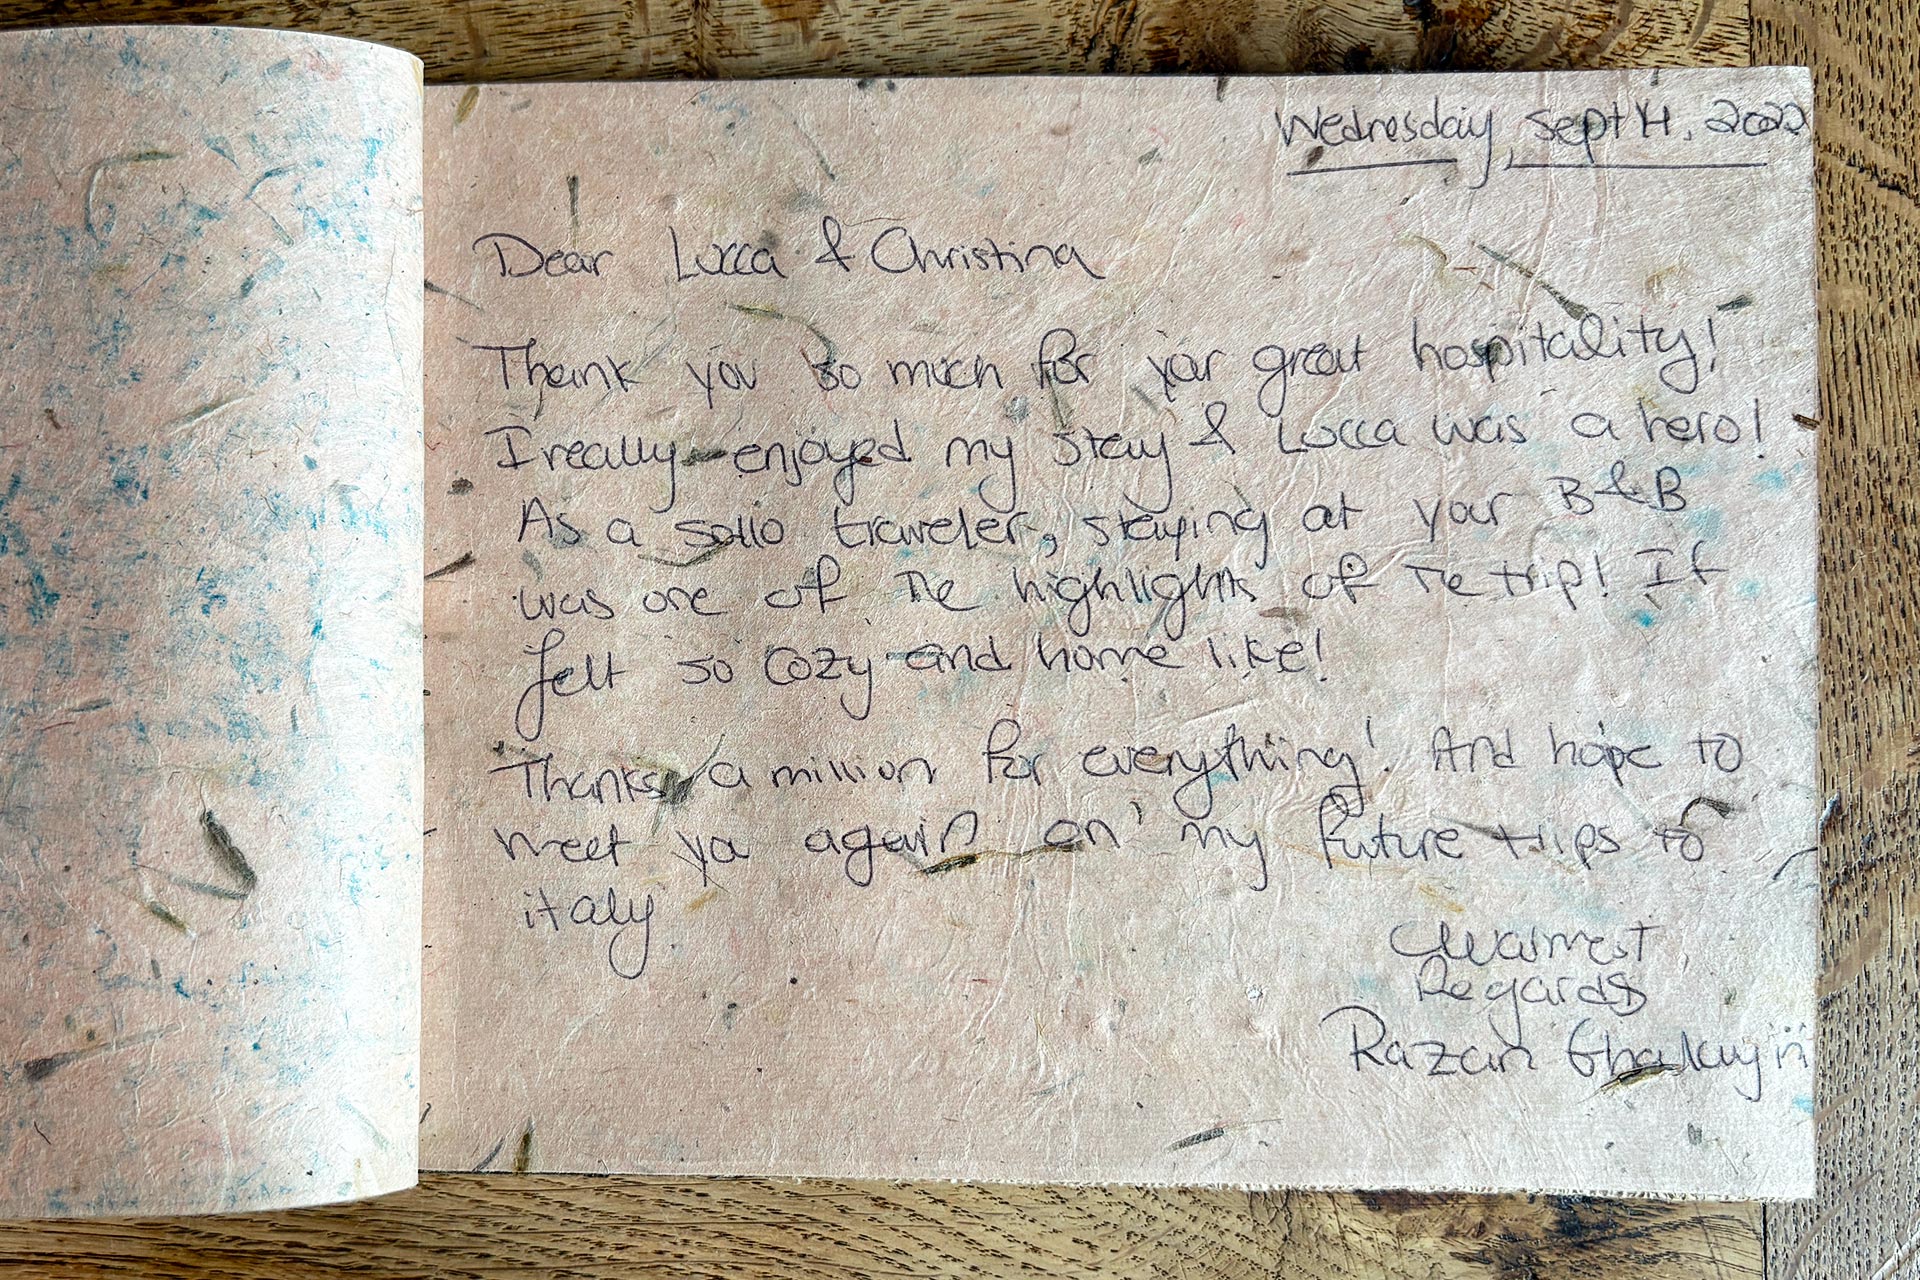 Wednesday, Sept 14, 2022
Dear Lucca & Christina
Thank you so much for your great hospitality!
I really enjoyed my stay & Lucca was a hero!
As a sollo traveler, staying at your B&B
was one of the highlights of the trip! It
felt so cozy and home like!
Thanks a million for everything! And hope to
meet you again on my future trips to
italy
Warmest
Regards
Razan